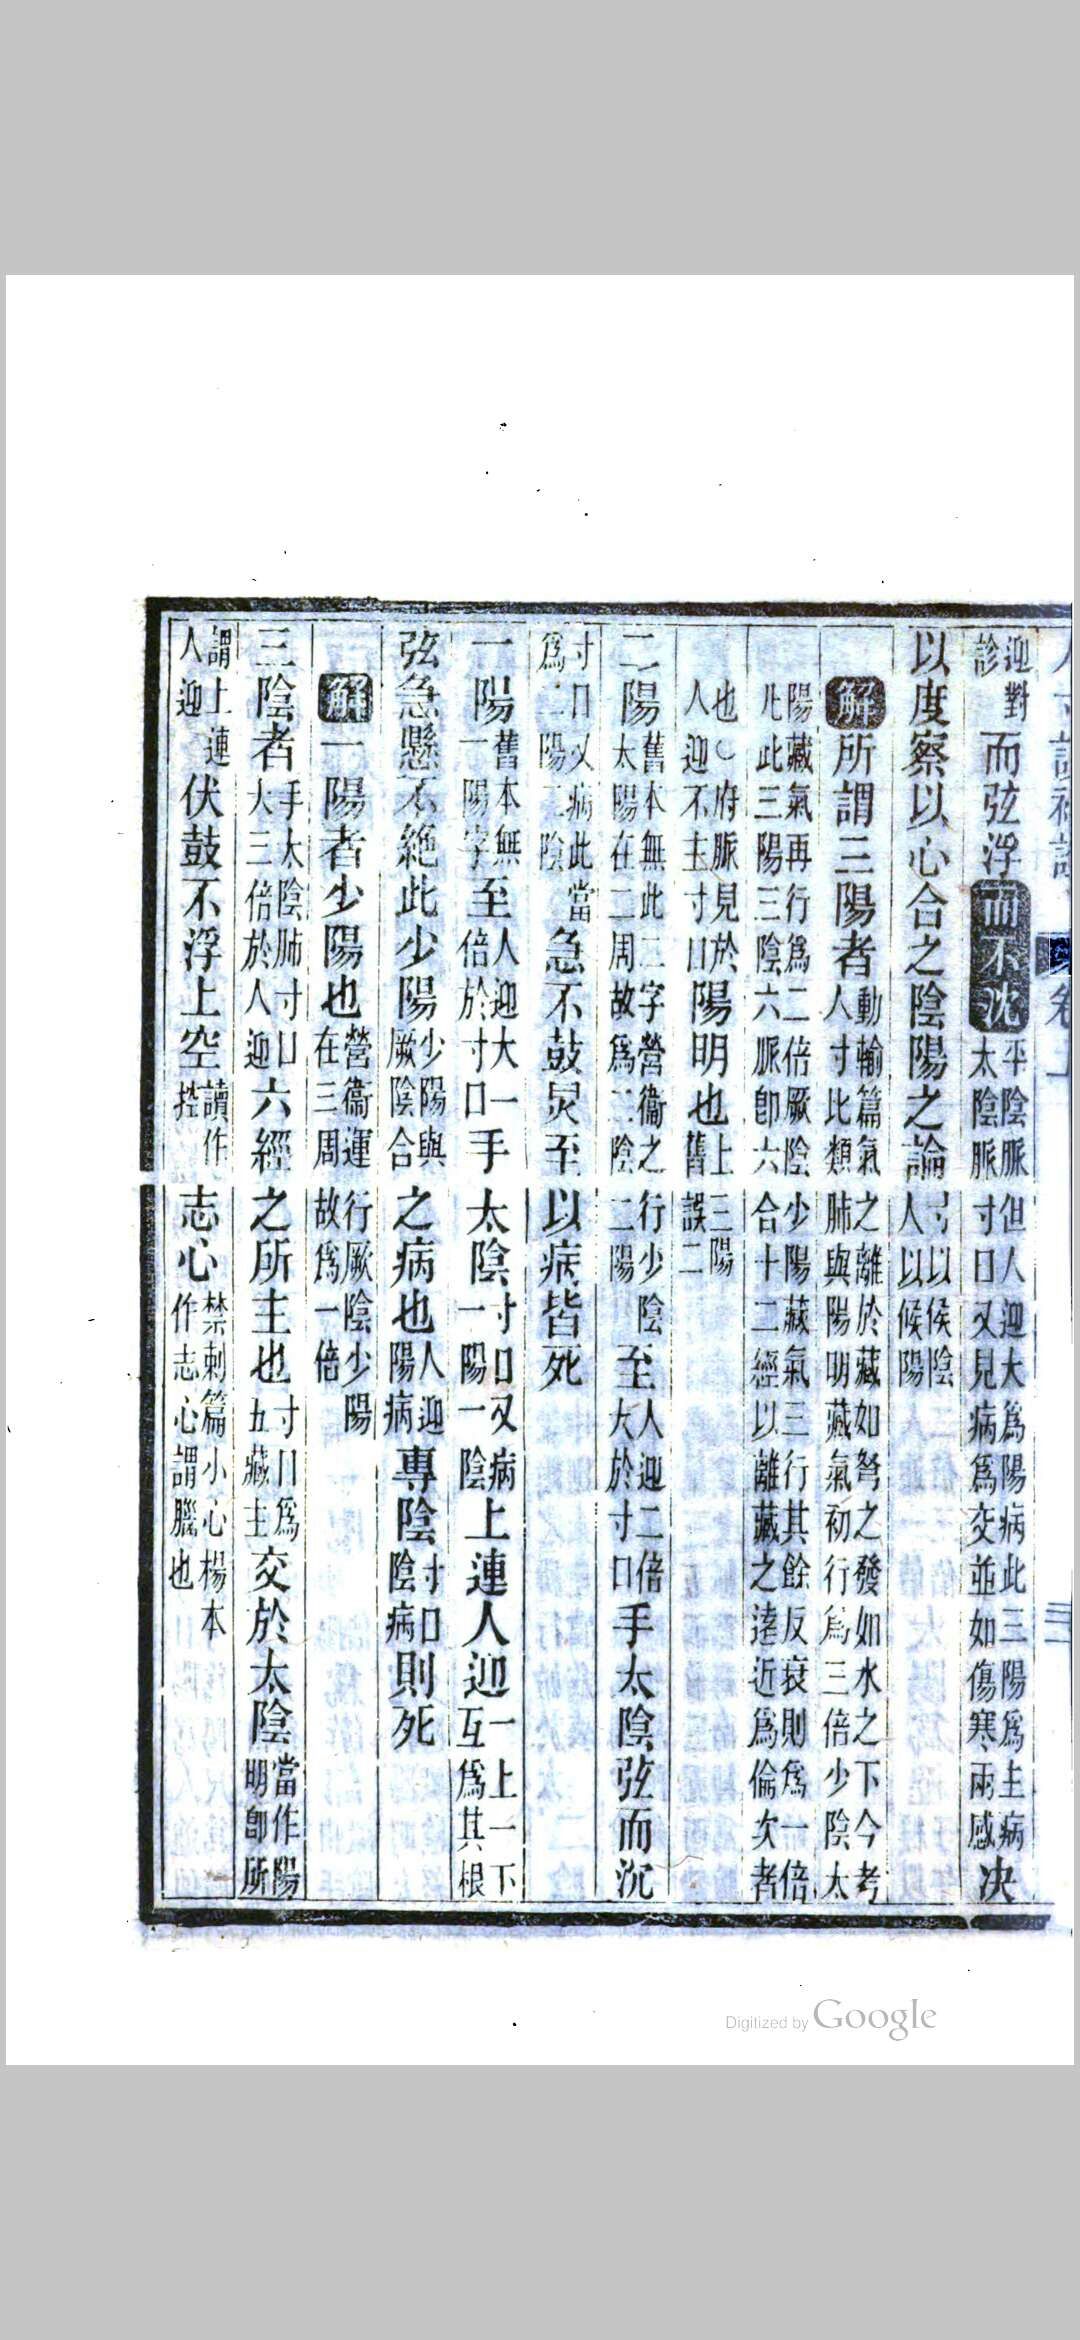 迎對診而弦浮而不沈平陰脈但人迎大為陽病此三陽為主病太陰脈寸口又見病為交並如傷寒兩感决
以度察以心合之陰陽之論寸以候陰人以候陽
解所謂三陽者動輸篇氣之離於藏如弩之發如水之下今考人寸比類肺與陽明藏氣初行為三倍少陰太
陽藏氣再行為二倍厥陰少陽藏氣三行其餘反衰則為一倍凡此三陽三陰六脈卽六合十二經以離藏之逺近為倫次者
也○府脈見於人迎不主寸口陽明也上三陽舊誤二
二陽舊本無此二字營衞之行少陰太陽在二周故為二陰二陽至人迎二倍大於寸口手太陰弦而沉
寸口又病此當為二陽二陰急不鼓炅至以病皆死
一陽舊本無一陽字至人迎大一倍於寸口手太陰寸口又病一陽一陰上連人迎一上一下互為其根
弦急懸不絶此少陽少陽與厥陰合之病也人迎陽病專陰寸口陰病則死
解一陽者少陽也營衞運行厥陰少陽在三周故為一倍
三陰者手太陰肺寸口大三倍於人迎六經之所主也寸口為五藏主交於太陰當作陽明卽所
謂上連人迎伏鼓不浮上空讀作控志心禁刺篇小心楊本作志心謂也
Digitized by Google